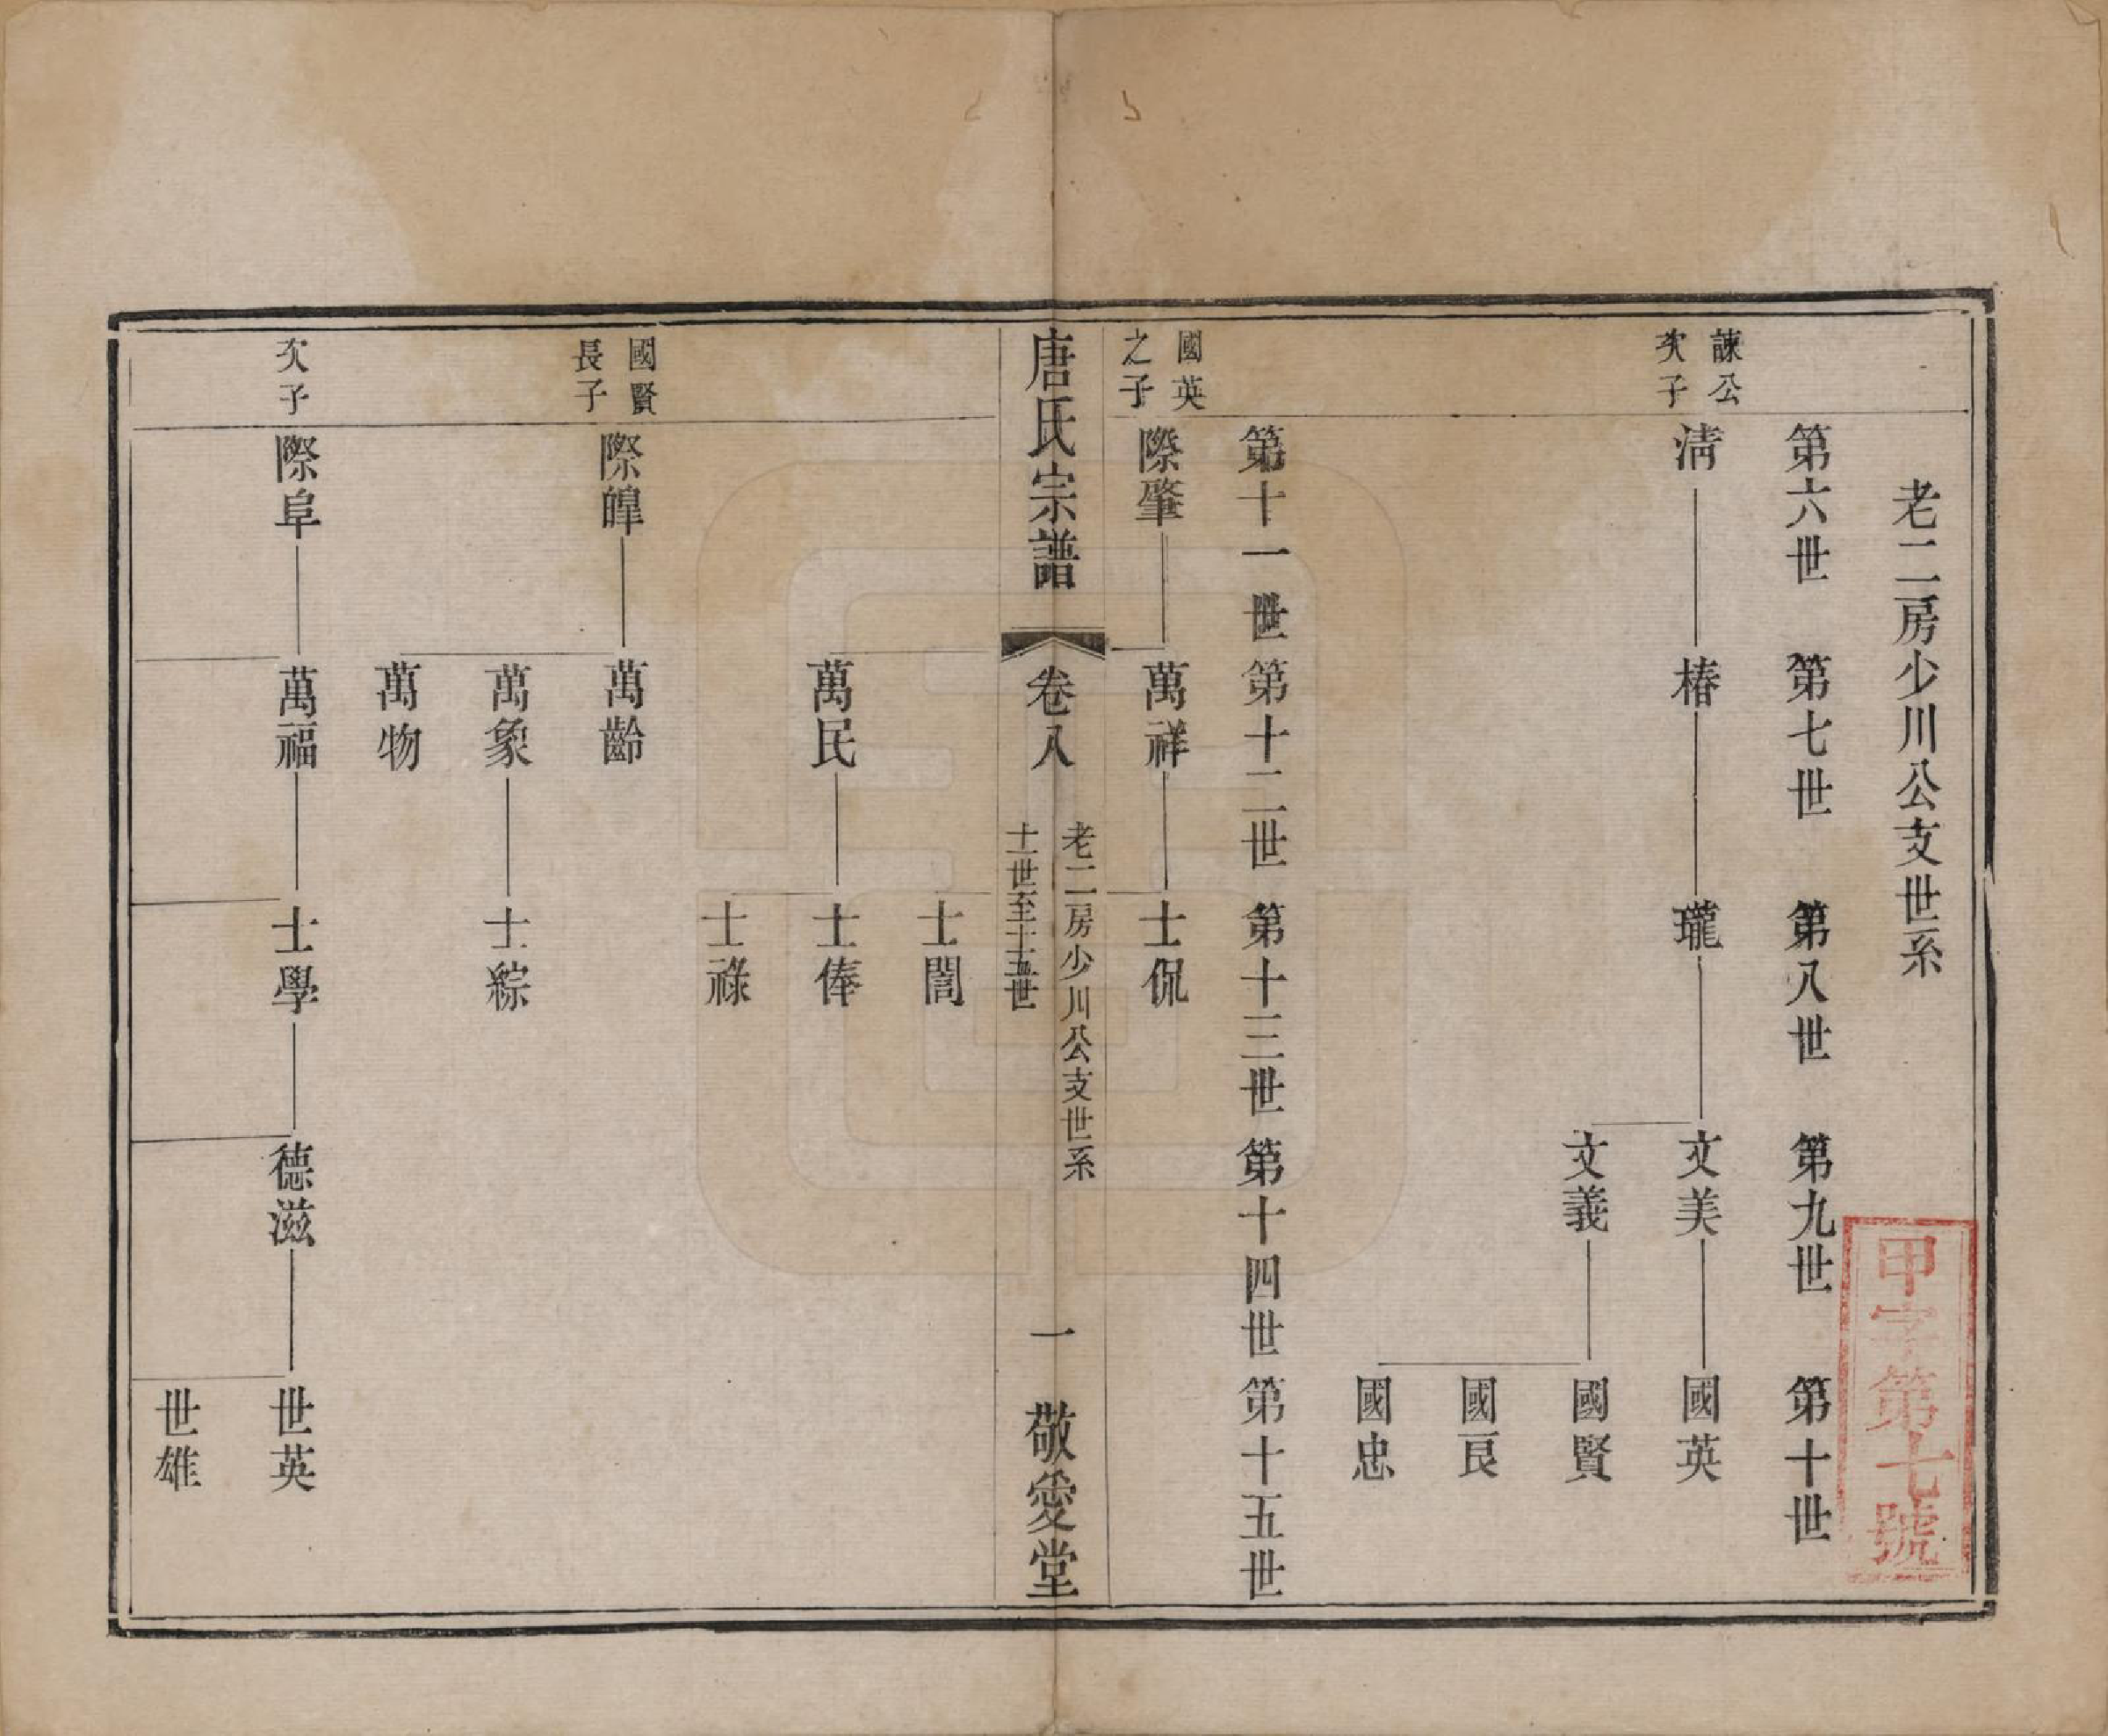 老二房少川公支世系
第六世　第七世　第八世　第九世　第十世
諫公
次子
淸　椿　瓏　文美　國英
文義　國賢
國良
國忠
第十一世　第十二世　第十三世　第十四世　第十五世
國英
之子
際肇　萬祥　士侃
唐氏宗譜　卷八　老二房少川公支世系
十一世至十五世
一　敬愛堂
士誾
萬民　士俸
士祿
國賢
長子
際皡　萬齡
萬象　士綜
萬物
次子
際阜　萬福　士學　德滋　世英
世雄
甲字第七號